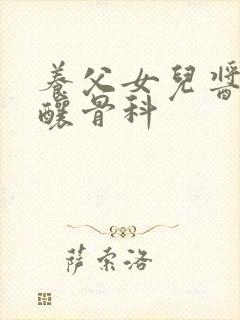 養父女兒醬
釀骨科
薩索洛